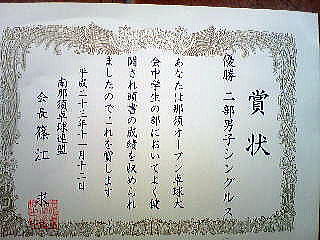 賞状
優勝 二部男子シングルス
あなたは那須オープン卓球大
会中学生の部においてよく健
闘され頭書の成績を収められ
ましたのでこれを賞します
平成二十三年十一月十二日
南那須卓球連盟
会長 篠江